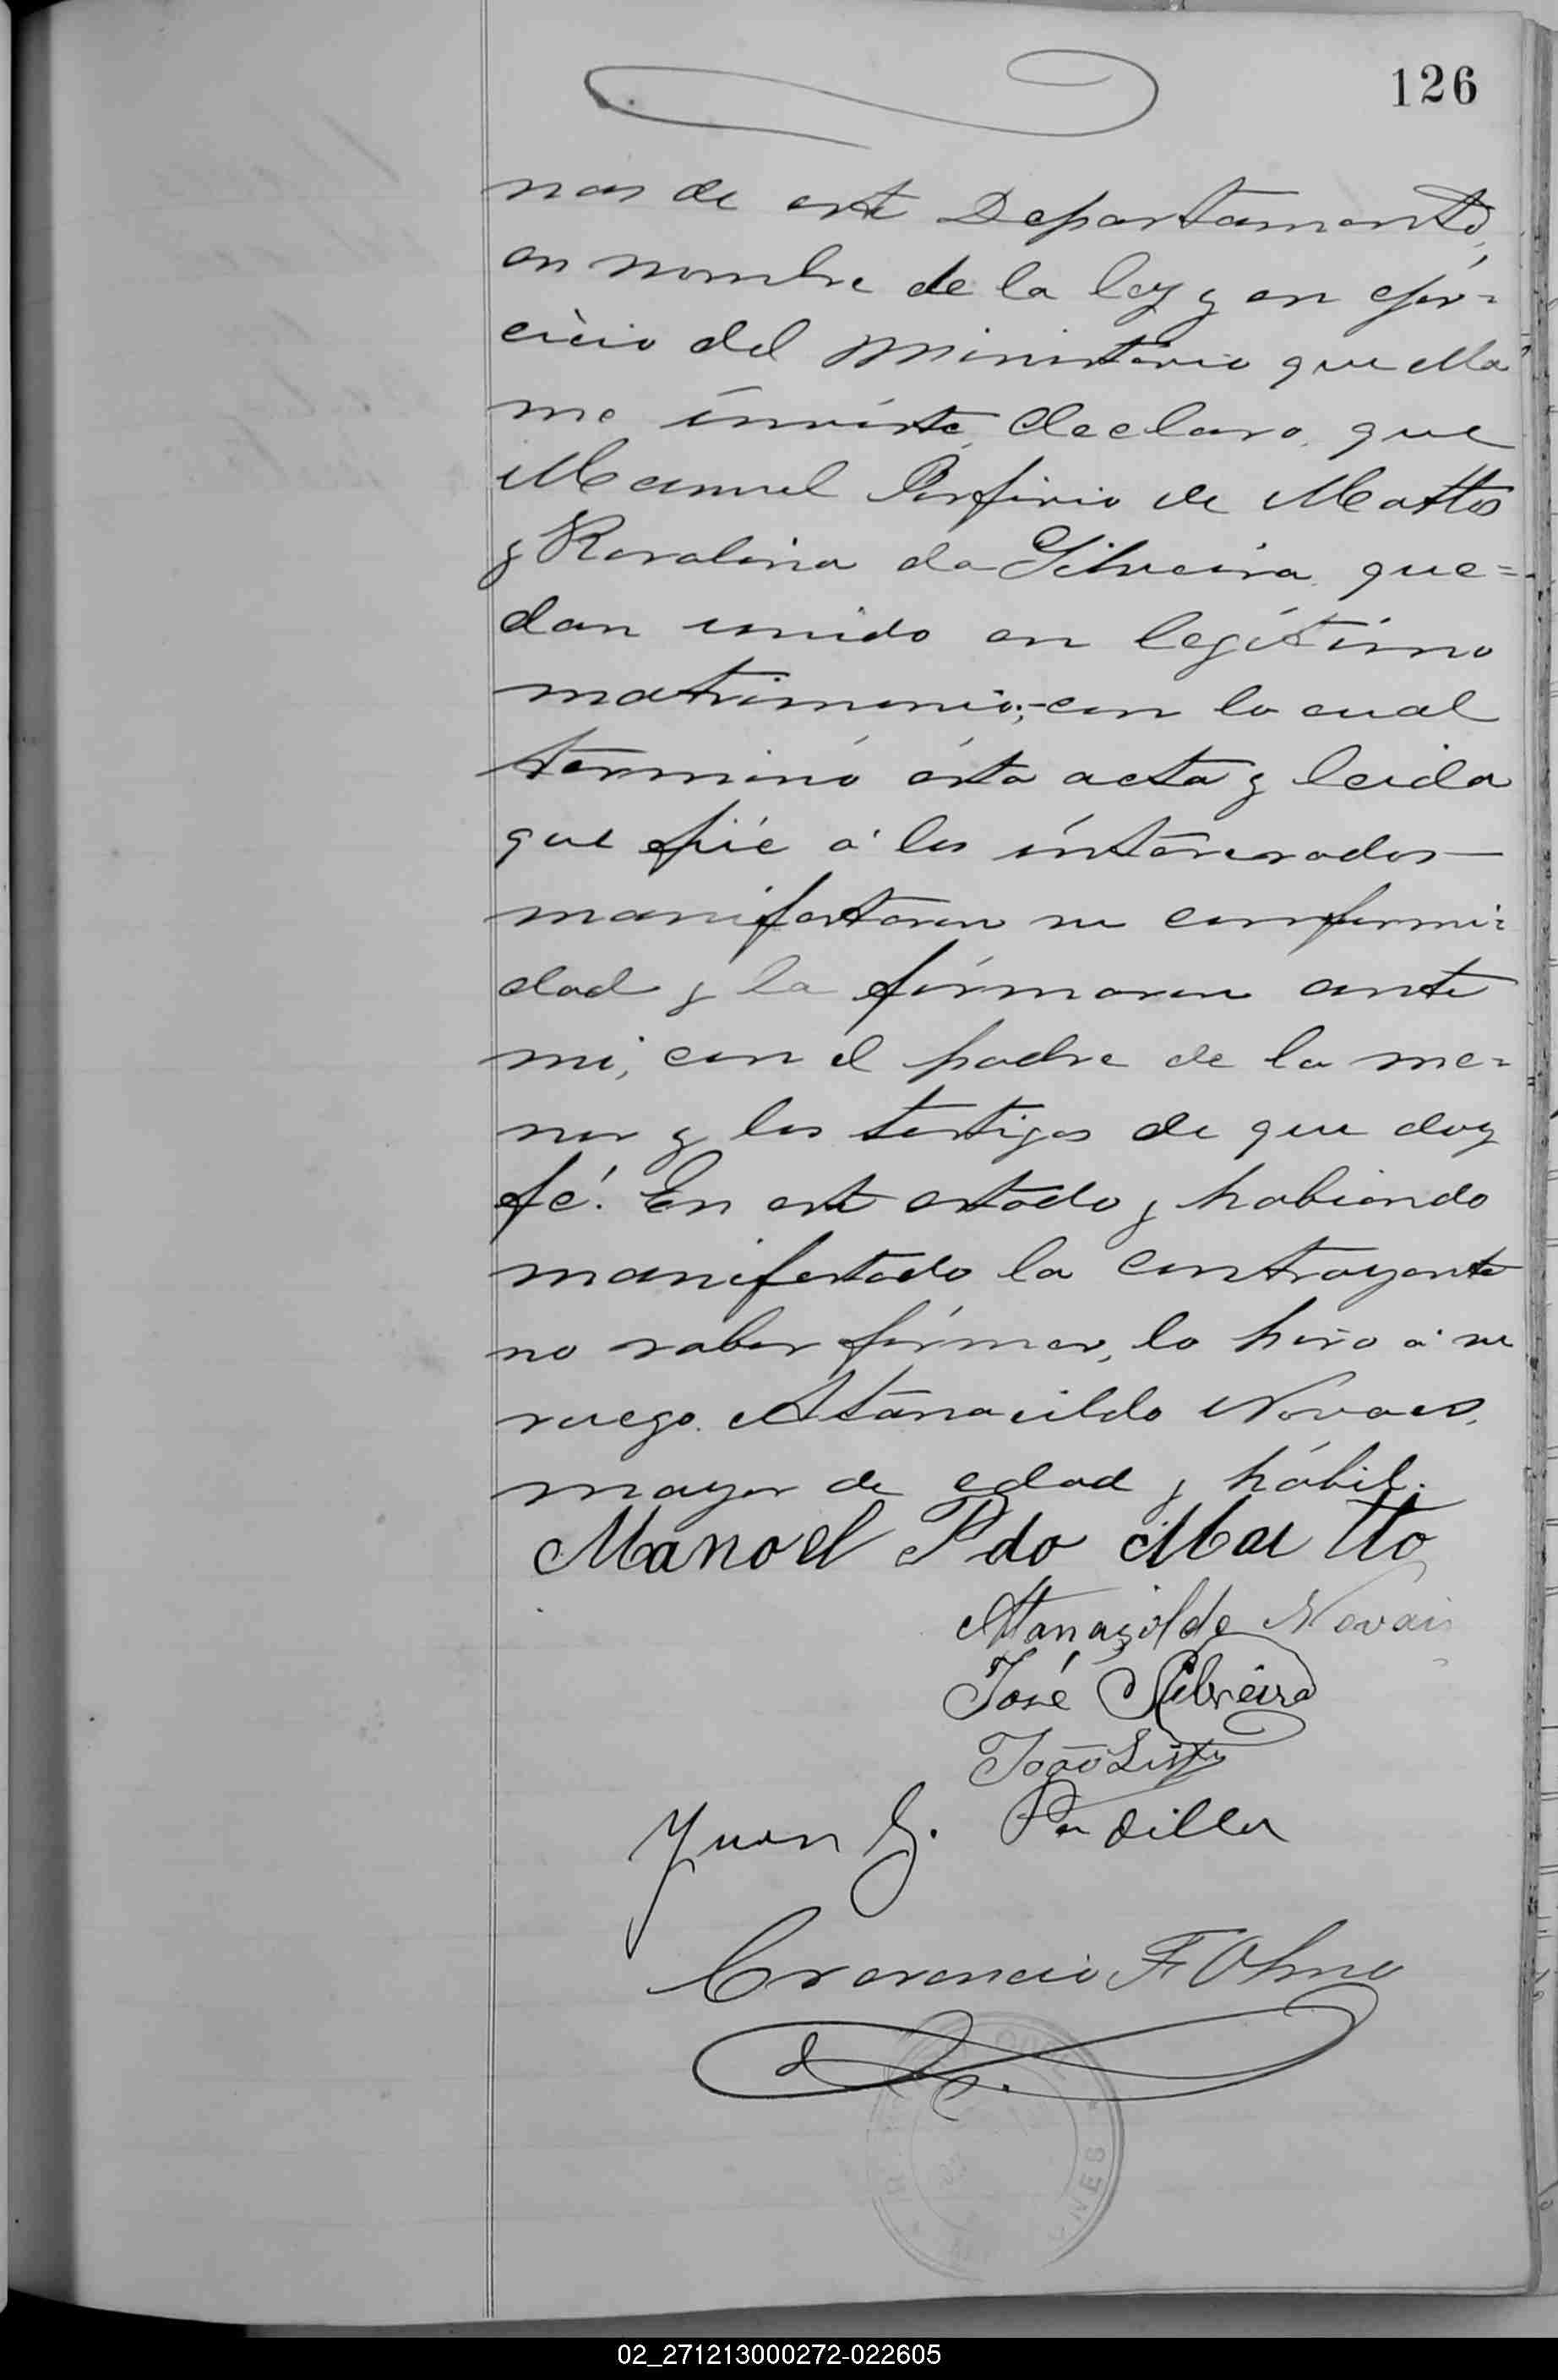 126
nas de este Departamento,
en nombre de la ley y en ejer=
cicio del Ministerio que ella
me inviste, declaro, que
Manuel Porfirio de Mattos
y Rosalina da Silveira, que=
dan unido en legítimo
matrimonio;- con lo cual
terminó ésta acta y leida
que fué á los interesados
manifestaron su conformi=
dad y la firmaron ante
mi, con el padre de la me=
nor y los testigos de que doy
fé. En este estado y habiendo
manifestado la contrayente
no saber firmar, lo hizo á su
ruego Atanacildo Novaes,
mayor de edad y hábil.
Manoel P do Matto
Atanagildo Novais
José Silveira
João
Juan G. Padilla
Cresencio F
02_271213000272-022605